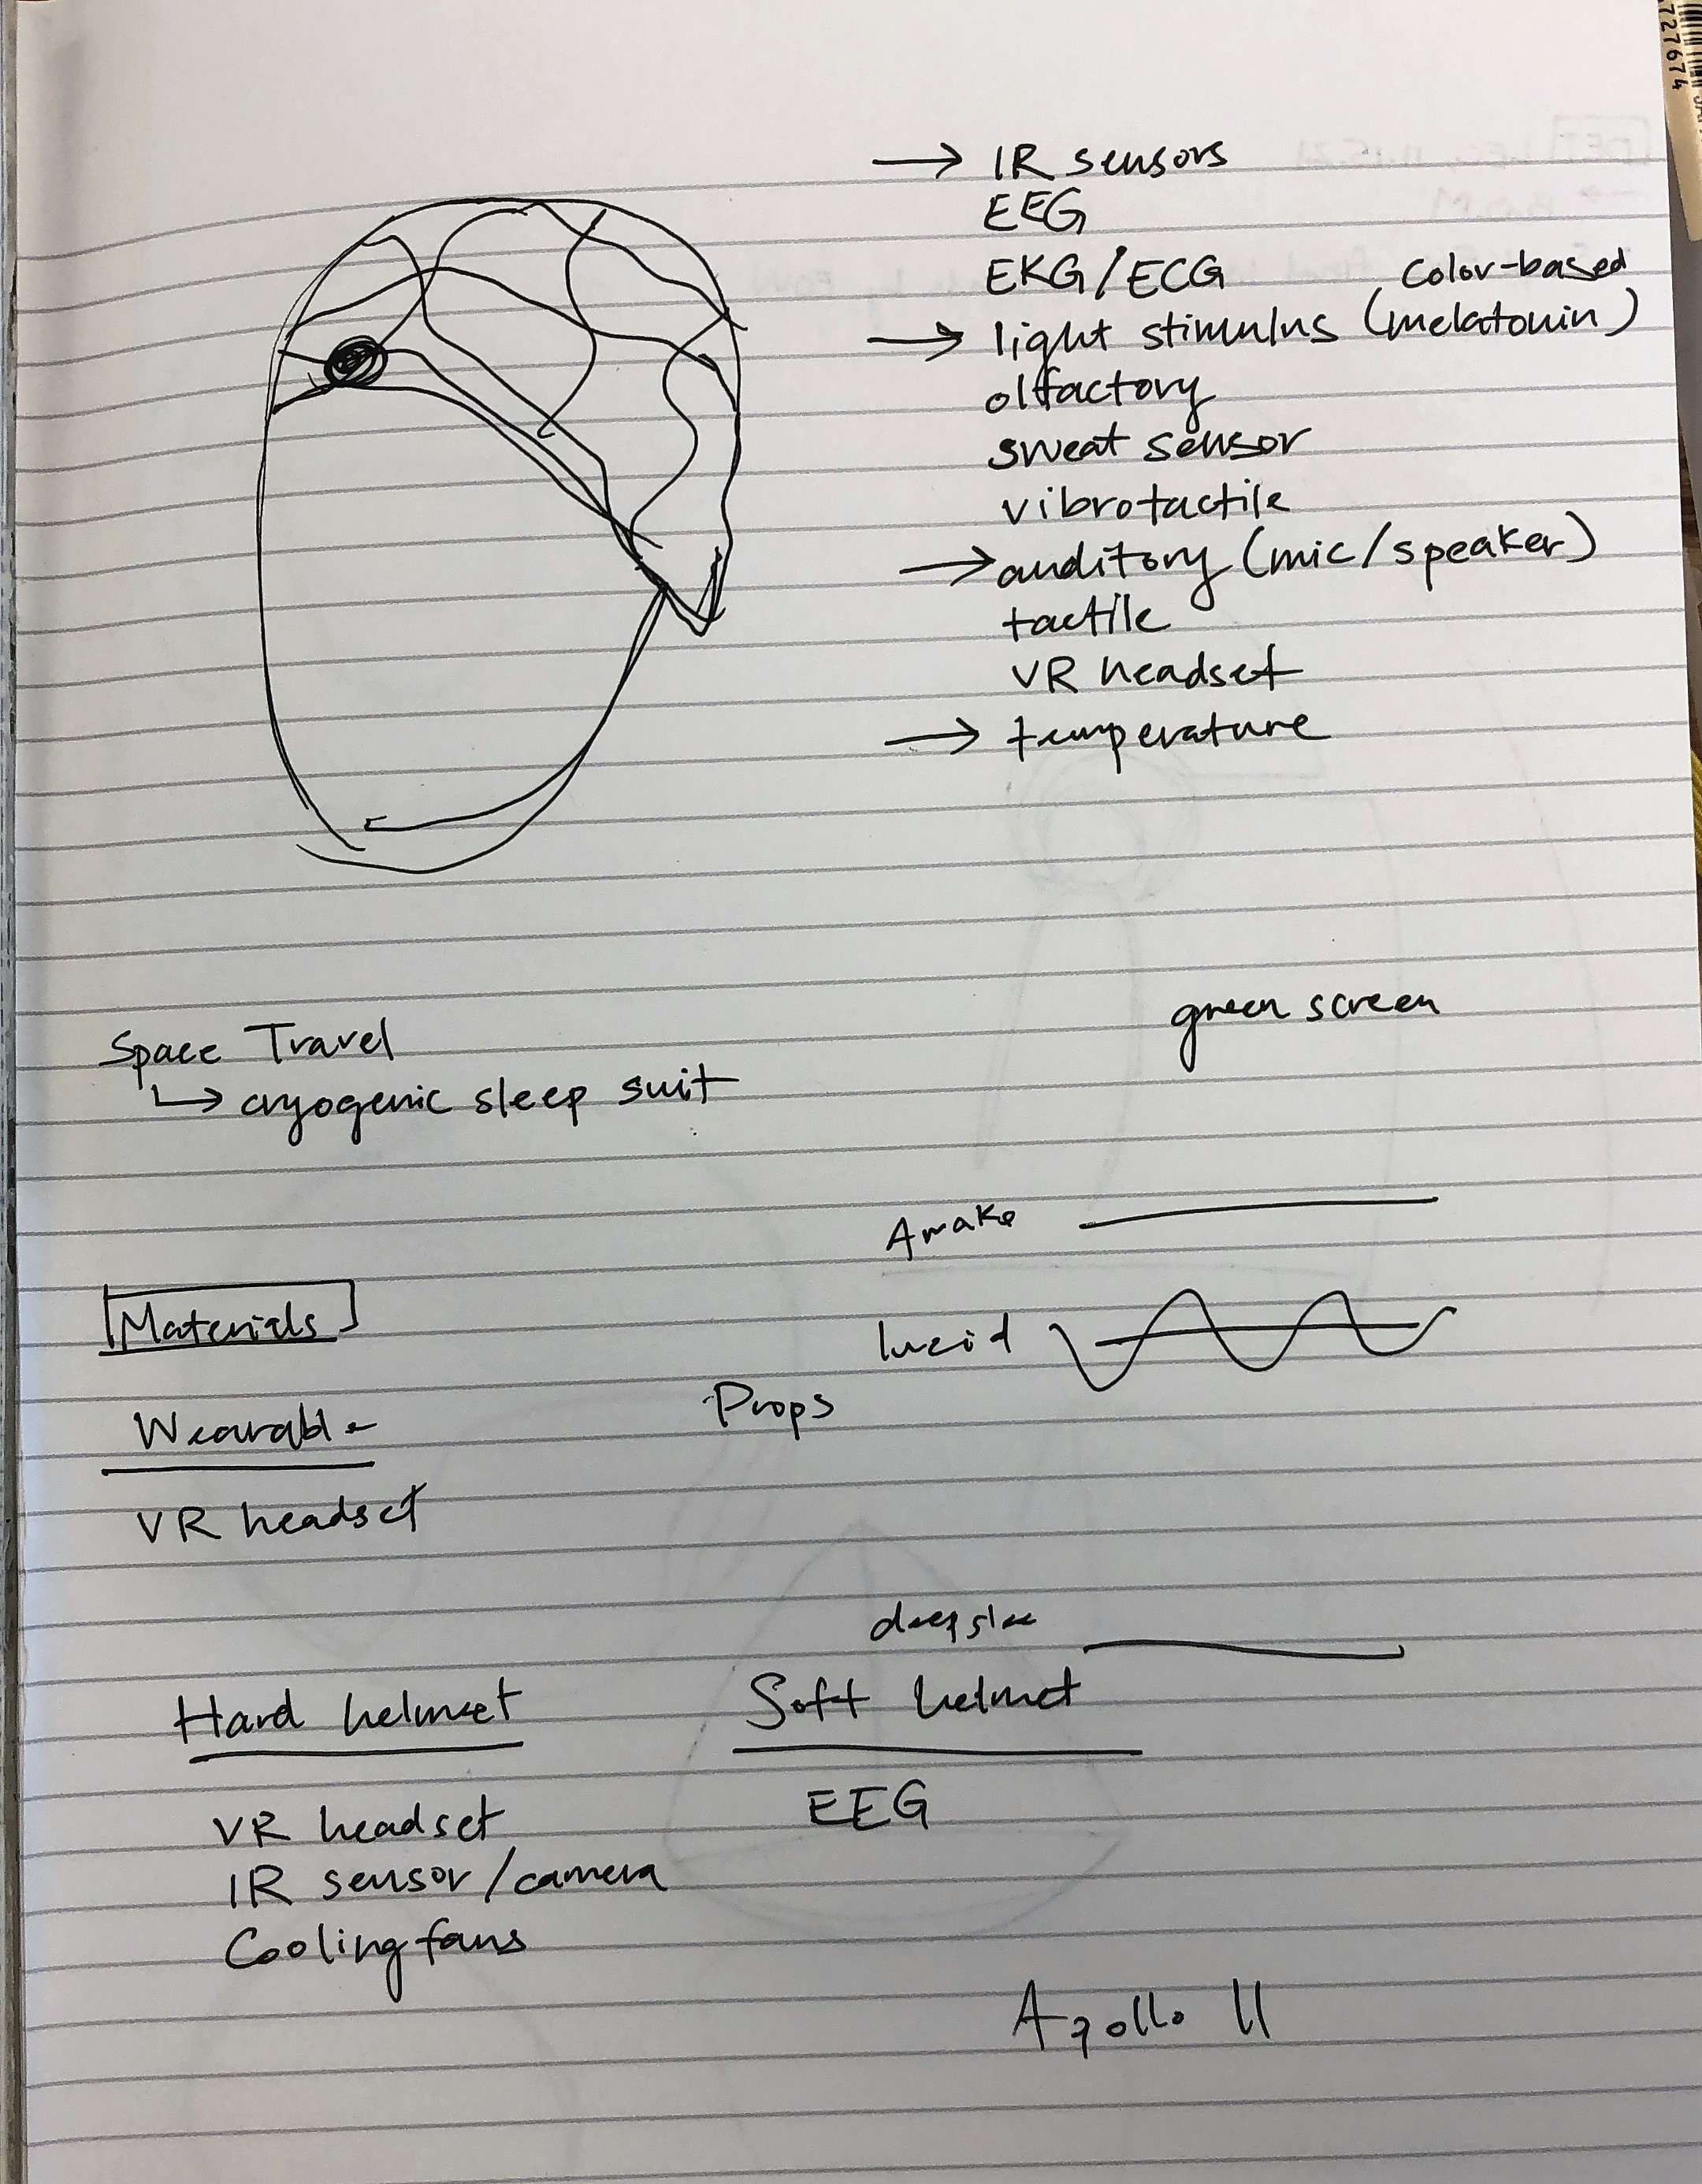 727674
→ IR sensors
EEG
EKG/ECG
color-based
→ light stimulus (melatonin)
olfactory
sweat sensor
vibrotactile
→ auditory (mic/speaker)
tactile
VR headset
→ temperature
green screen
Space Travel
↳ cryogenic sleep suit
Awake
Materials
lucid
Props
Wearable
VR headset
deep slee
Hard helmet
Soft helmet
VR headset
EEG
IR sensor/camera
Cooling fans
Apollo 11